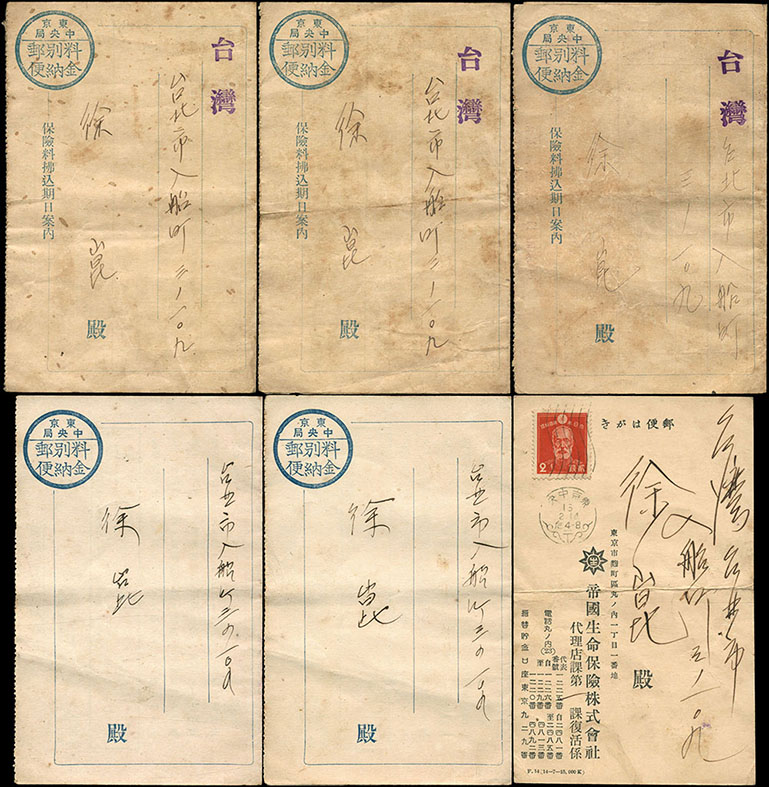 東京
中央局
料金別納郵便
台灣
台北市入船町三ノ一〇九
徐崑
殿
保險料拂込期日案內
東京
中央局
料金別納郵便
台灣
台北市入船町三ノ一〇九
徐崑
殿
保險料拂込期日案內
東京
中央局
料金別納郵便
台灣
台北市入船町
三ノ一〇九
徐崑
殿
保險料拂込期日案內
東京
中央局
料金別納郵便
台北市入船町三ノ一〇九
徐崑
殿
東京
中央局
料金別納郵便
台北市入船町三ノ一〇九
徐崑
殿
郵便はがき
台灣台北市
入船町三ノ一〇九
徐崑
殿
東京市麴町區丸ノ內一丁目一番地
帝國生命保險株式會社
代理店課第一課復活係
電話丸ノ內
振替貯金口座東京九二九番
2
東京中央
15
4-8